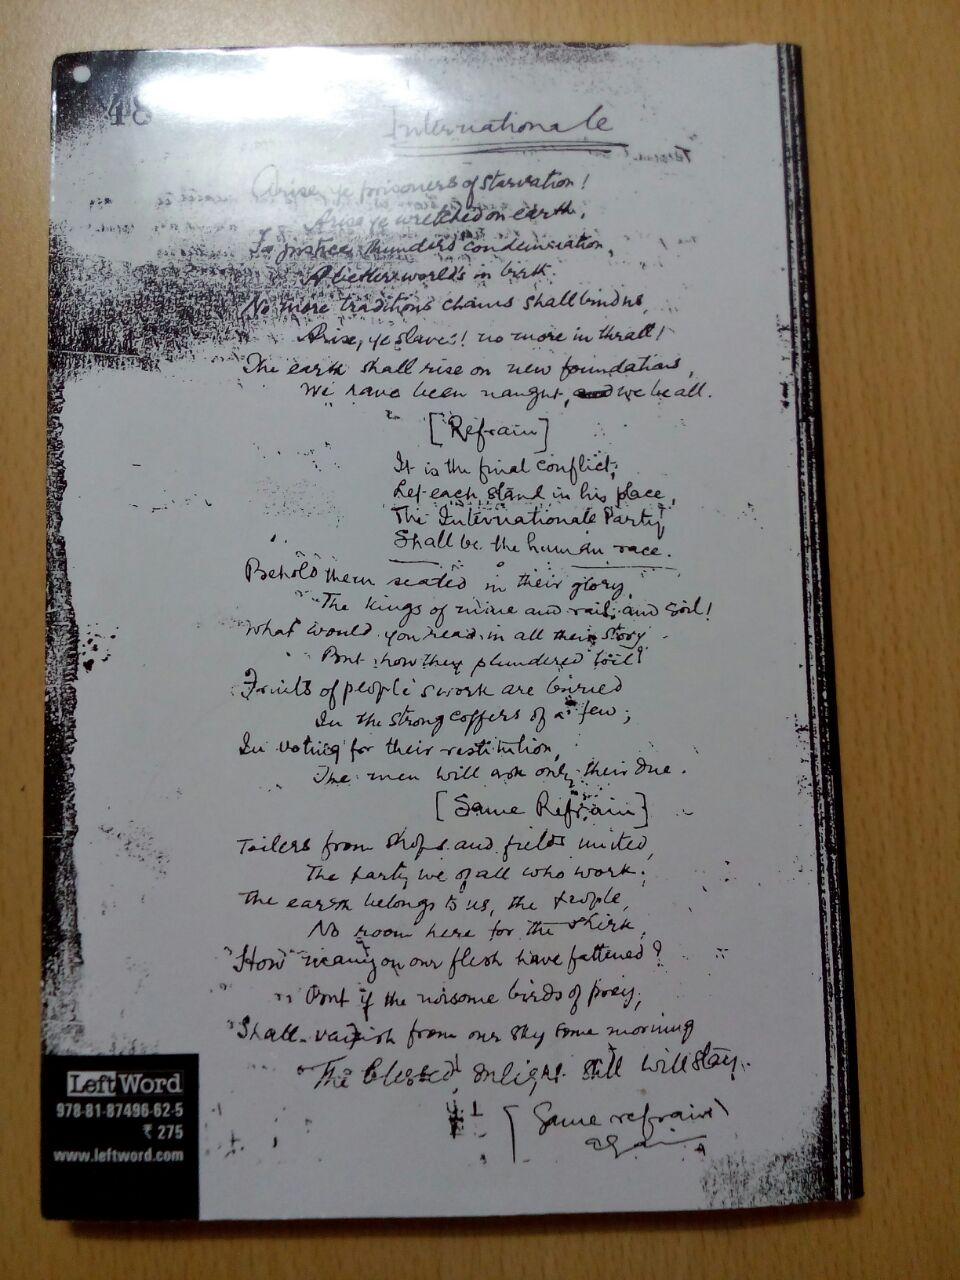 48
Internationale
Arise, ye prisoners of starvation!
Arise ye wretched on earth,
For justice thunders condemnation,
A better world's in birth.
No more traditions chains shall bind us,
Arise, ye slaves! no more in thrall!
The earth shall rise on new foundations,
We have been naught, we be all.
[Refrain]
It is the final conflict,
Let each stand in his place,
The Internationale Party
Shall be the human race.
Behold them seated in their glory,
The kings of mine and rail and soil!
What would you read in all their story
But how they plundered toil?
Fruits of people's work are buried
In the strong coffers of a few;
In voting for their restitution,
The men will ask only their due.
[Same Refrain]
Toilers from shops and fields united,
The party we of all who work;
The earth belongs to us, the people,
No room here for the shirk,
How many on our flesh have fattened?
But if the noisome birds of prey,
Shall vanish from our sky some morning
The blessed still will stay.
[Same refrain
again
LeftWord
978-81-87496-62-5
₹ 275
www.leftword.com